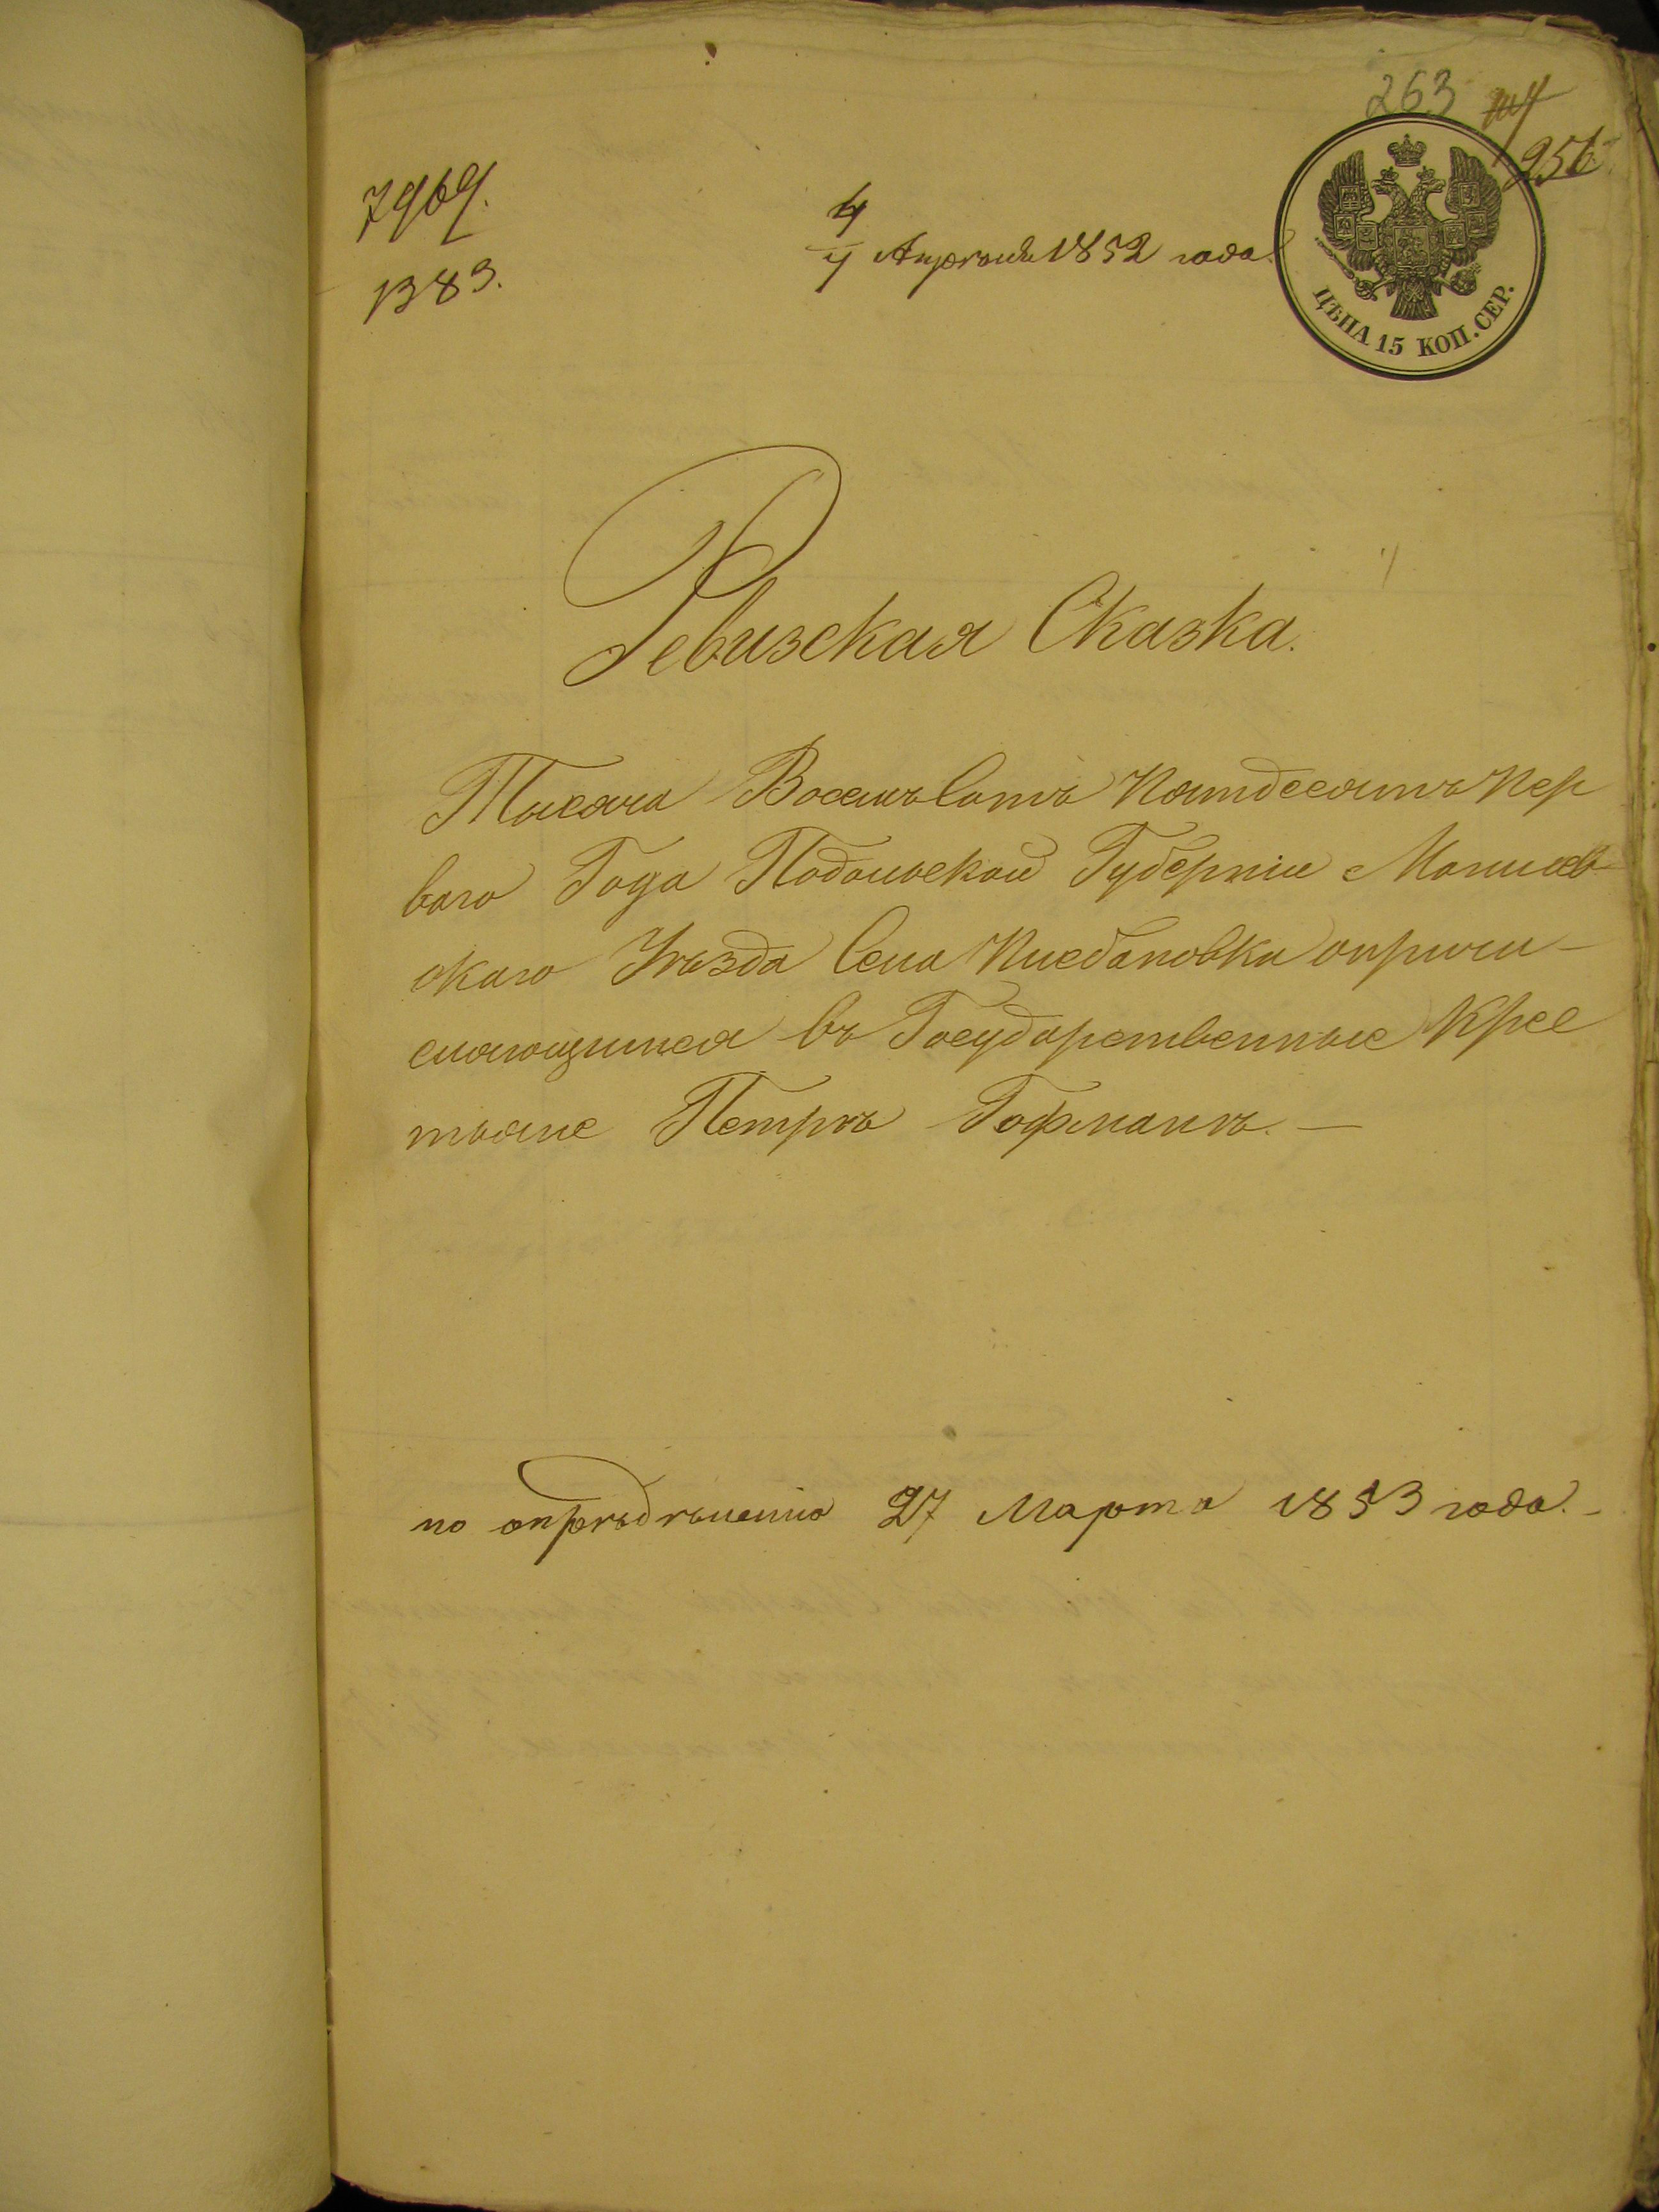 263
256
7969.
1383.
4
4 Апрѣля 1852 года.
ЦѢНА 15 КОП. СЕР.
Ревизская Сказка.
Тысяча Восемьсотъ Пятдесятъ Пер
ваго Года Подольской Губерніи Могилев-
скаго Уѣзда Села опричи-
сляющимся въ Государственные Крес
тьяне Петръ Гофманъ. —
по опрѣдѣленію 27 Марта 1853 года. -